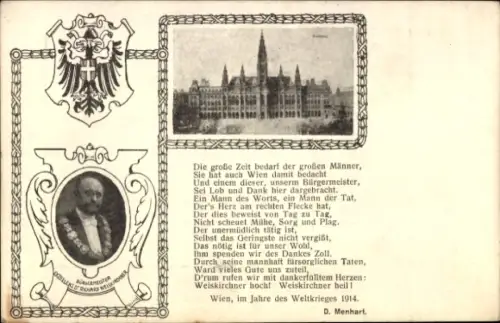 Die große Zeit bedarf der großen Männer,
Sie hat auch Wien damit bedacht
Und einem dieser, unserm Bürgermeister,
Sei Lob und Dank hier dargebracht.
Ein Mann des Worts, ein Mann der Tat,
Der's Herz am rechten Flecke hat,
Der dies beweist von Tag zu Tag,
Nicht scheuet Mühe, Sorg und Plag.
Der unermüdlich tätig ist,
Selbst das Geringste nicht vergißt,
Das nötig ist für unser Wohl,
Ihm spenden wir des Dankes Zoll.
Durch seine mannhaft fürsorglichen Taten,
Ward vieles Gute uns zuteil,
D'rum rufen wir mit dankerfülltem Herzen:
Weiskirchner hoch! Weiskirchner heil!
Wien, im Jahre des Weltkrieges 1914.
D. Menhart.
BÜRGERMEISTER
EXZELLENZ Dr RICHARD WEISKIRCHNER